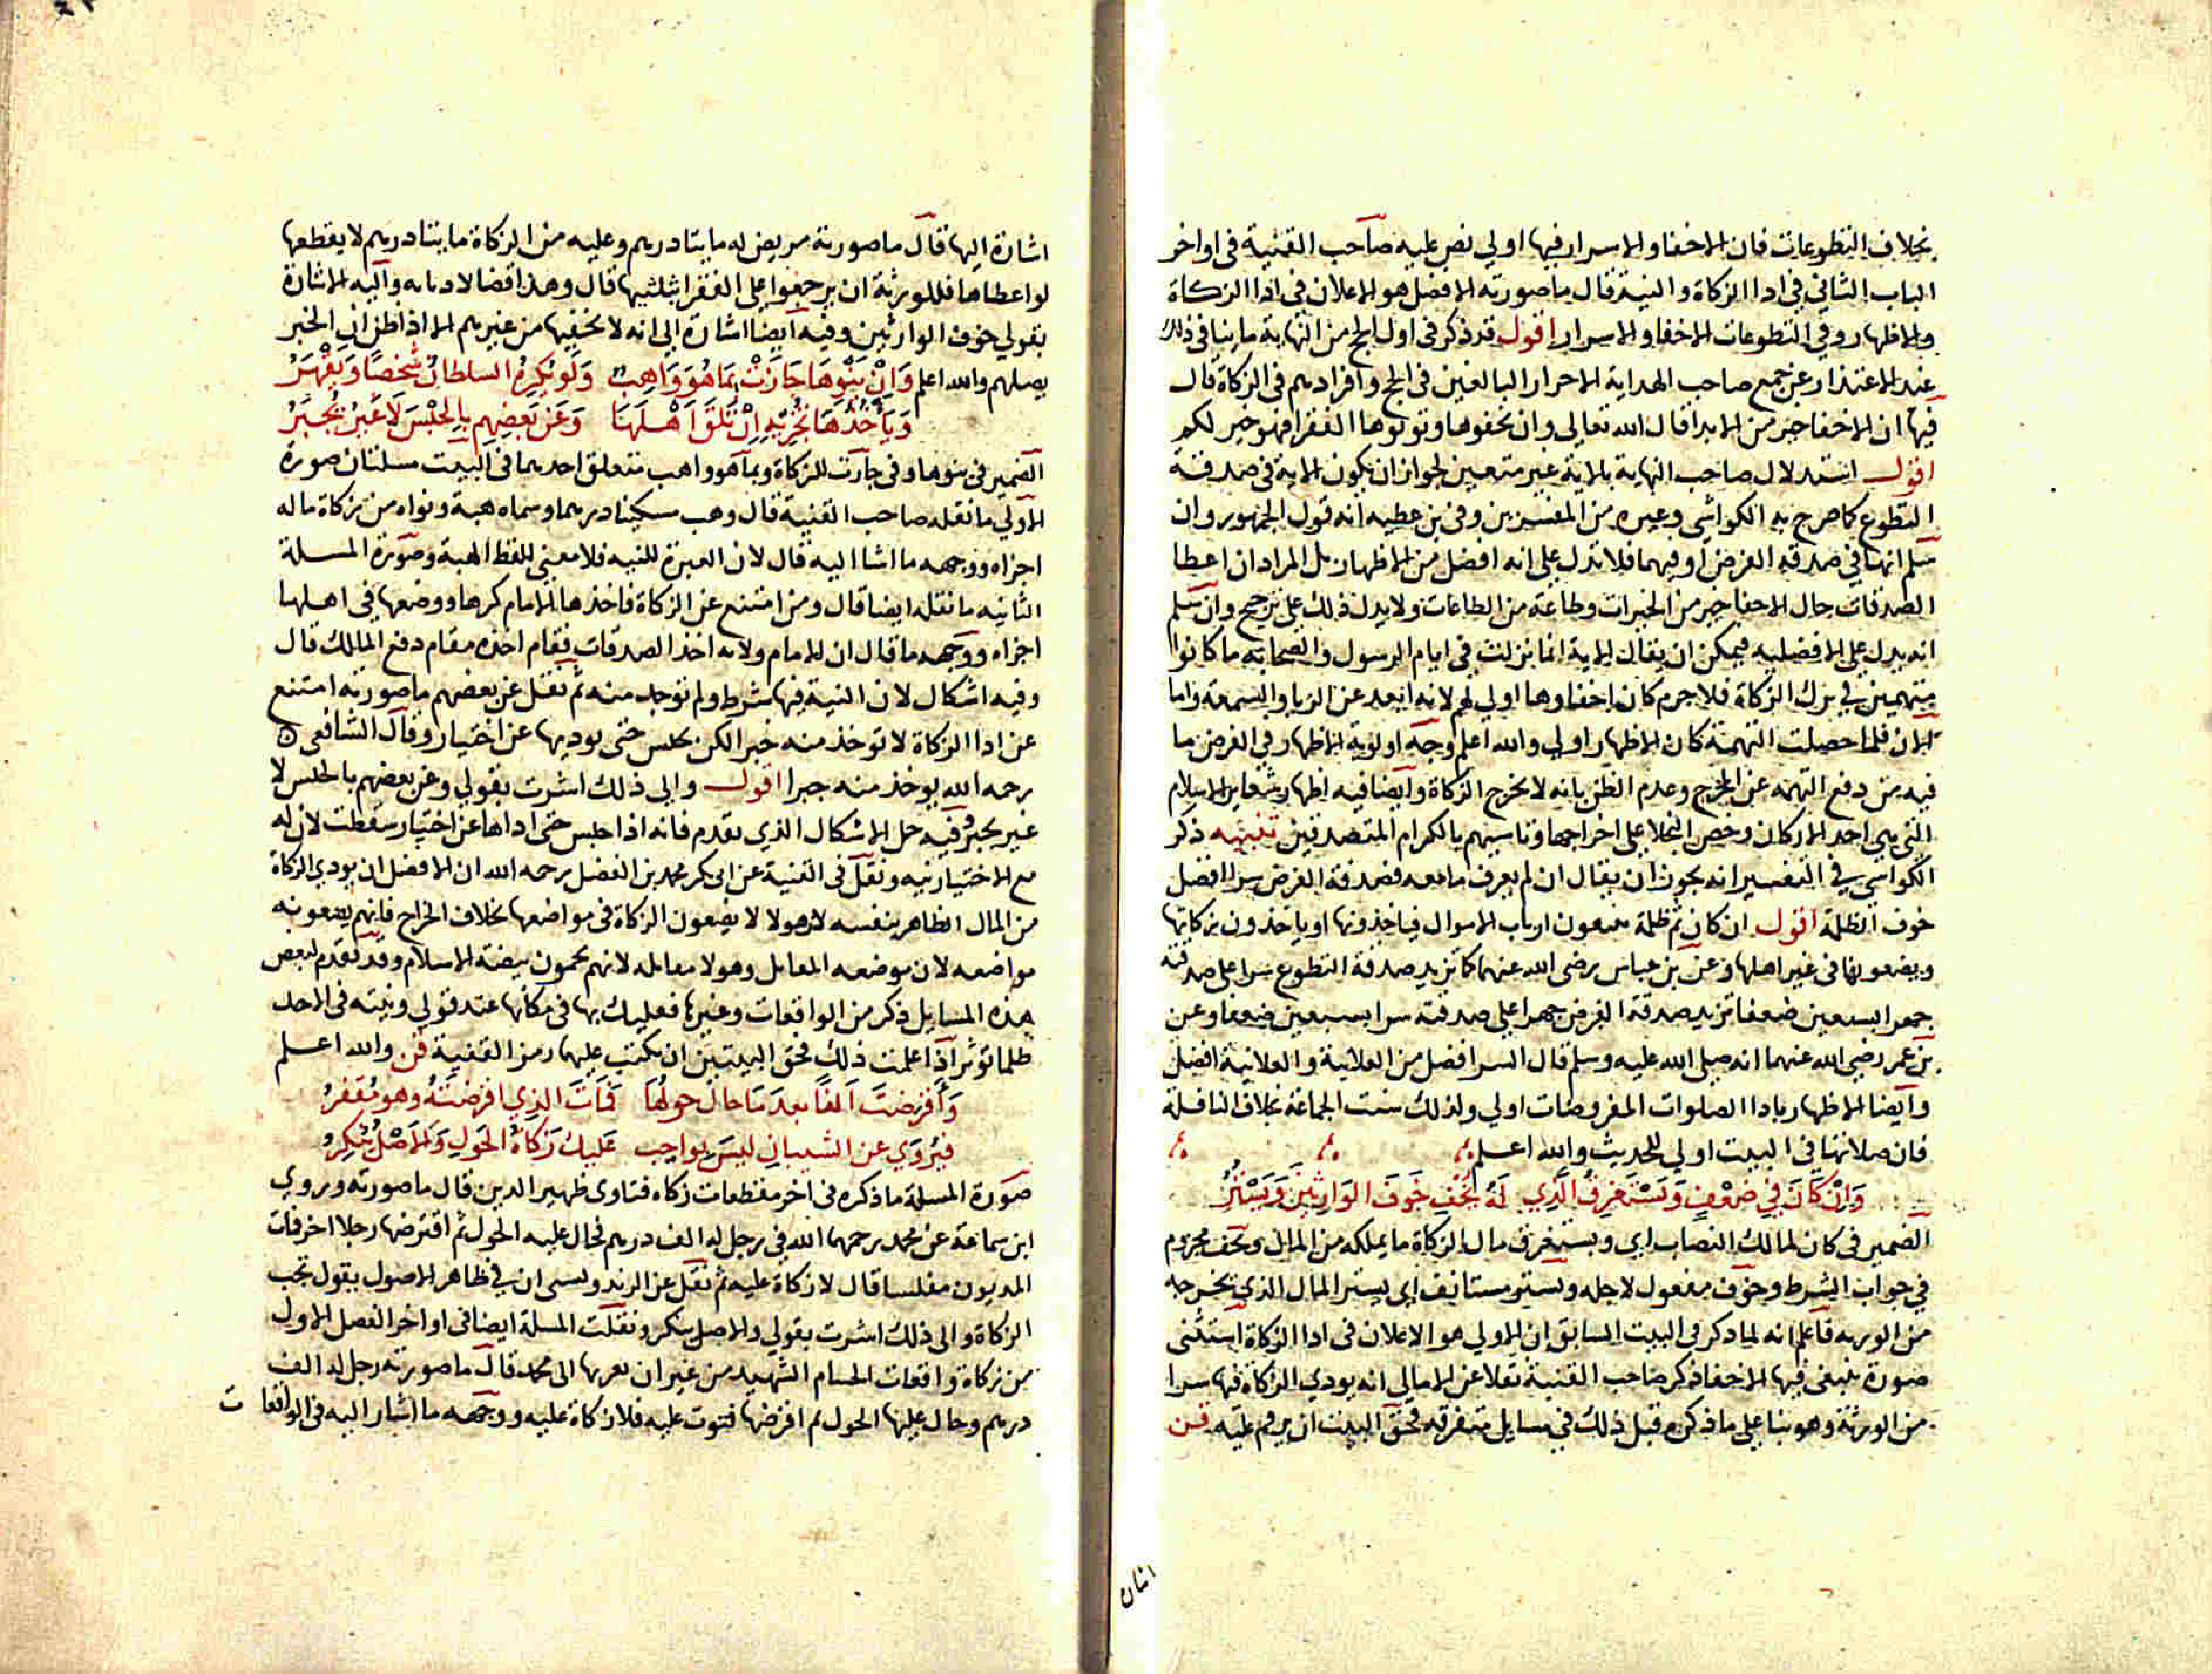 بخلاف التطوعات فان الاخفا والاسرار فيها اولي نص عليه صاحب القنية في اواخر
الباب الثاني في ادا الزكاة والنية قال ما صورته الافضل هو الاعلان في ادا الزكاة
والاظهار وفي التطوعات الاخفا والاسرار اقول قد ذكر في اول الحج من النهاية ما ينافي ذلك
عند الاعتذار عن جمع صاحب الهداية الاحرار البالغين في الحج وافرادهم في الزكاة قال
فيها ان الاخفا خير من الابدا قال الله تعالي وان تخفوها وتوتوها الفقرا فهو خير لكم
اقول استدلال صاحب النهاية بالاية غير متعين لجواز ان يكون الاية في صدقة
التطوع كما صرح به الكواشي وغيره من المفسرين وفي بن عطيه انه قول الجمهور وان
سلم انها في صدقة الفرض او فيهما فلا تدل علي انه افضل من الاظهار بل المراد ان اعطا
الصدقات حال الاخفا خير من الخيرات وطاعة من الطاعات ولا يدل ذلك علي ترجيح وان سلم
انه يدل علي الافضليه فيمكن ان يقال الاية انما نزلت في ايام الرسول والصحابة ما كانوا
متهمين في ترك الزكاة فلا جرم كان اخفاوها اولي لهم لانه ابعد عن الريا والسمعة واما
الان فلما حصلت التهمة كان الاظهار اولي والله اعلم وجه اولوية الاظهار في الفرض ما
فيه من دفع التهمه عن المخرج وعدم الظن بانه لا يخرج الزكاة وايضا فيه اظهار شعاير الاسلام
التي هي احد الاركان وحض البخلا علي اخراجها وتاسيهم بالكرام المتصدقين تنبيه ذكر
الكواشي في التفسير انه يجوز ان يقال ان لم يعرف ما معه فصدقة الفرض سرا افضل
خوف الظلمة اقول ان كان ثم ظلمة يتبعون ارباب الاموال فياخذونها او ياخذون زكاتها
ويضعونها في غير اهلها وعن بن عباس رضي الله عنهما كا تزيد صدقة التطوع سرا علي صدقته
جهرا سبعين ضعفا تزيد صدقة الفرض جهرا علي صدقته سرا بسبعين ضعفا وعن
بن عمر رضي الله عنهما انه صلي الله عليه وسلم قال السر افضل من العلانية والعلانية افضل
وايضا الاظهار بادا الصلوات المفروضات اولي ولذلك سنت الجماعة بخلاف النافلة
فان صلاتها في البيت اولي للحديث والله اعلم
وَاِنْ كَانَ فِي ضَعْفٍ وَيَسْتَغْرِقُ الَّذِي لَهُ يُخْفِ خَوفَ الوَارِثِيْنَ وَيَسْتُرُ
الضمير في كان لمالك النصاب اي ويستغرق مال الزكاة ما يملكه من المال ويخف مجزوم
في جواب الشرط وخوف مفعول لاجله ويستر مستانف اي يستر المال الذي يخرجه
من الورثه فاعلم انه لما ذكر في البيت السابق ان الاولي هو الاعلان في ادا الزكاة استثني
صورة ينبغي فيها الاخفا ذكر صاحب القنية نقلا عن الامالي انه يودي الزكاة فيها سرا
من الورثة وهو بنا علي ما ذكره قبل ذلك في مسايل متفرقه فحق البيت ان يرقم عليه قن
اشارة اليها قال ما صورته مريض له مايتا درهم وعليه من الزكاة مايتا درهم لا يقطعها
لو اعطاها فللورثة ان يرجعوا علي الفقرا بثلثيها قال وهذا قضا لا ديانه واليه الاشارة
بقولي خوف الوارثين وفيه ايضا اشارة الي انه لا يخفيها من غيرهم الا اذا ظن ان الخبر
يصلهم والله اعلم وَاِنْ يَنْوِهَا جَازَتْ بِمَا هُوَ وَاهِبٌ وَلَو يُكْرِهُ السلطانُ شَخْصًا وَيَقْهَرُ
وَيَأْخُذُهَا تُجْزِيْهِ اِنْ تَلقَ اَهْلَهَا وَعَن بَعْضِهِم بِالحَبْسِ لَا غَيْرُ يُجْبَرُ
الضمير في ينوها وفي جازت للزكاة وبما هو واهب متعلق احدهما في البيت مسلتان صورة
الاولي ما نقله صاحب القنية قال وهب مسكينا درهما وسماه هبة ونواه من زكاة ماله
اجزاه ووجهه ما اشا اليه قال لان العبرة للنيه فلا معني للفظ الهبة وصورة المسلة
الثانيه ما نقله ايضا قال ومن امتنع عن الزكاة فاخذها الامام كرها ووضعها في اهلها
اجزاه ووجهه ما قال ان للامام ولاية اخذ الصدقات فقام اخذه مقام دفع المالك قال
وفيه اشكال لان النية فيها شرط ولم توجد منه ثم نقل عن بعضهم ما صورته امتنع
عن ادا الزكاة لا توخذ منه جبرا لكن يحبس حتى يوديها عن اختيار وقال الشافعي
رحمه الله يوخذ منه جبرا اقول والي ذلك اشرت بقولي وعن بعضهم بالحبس لا
غير يجبر وفيه حل الاشكال الذي تقدم فانه اذا حبس حتى اداها عن اختيار سقطت لان له
مع الاختيار نيه ونقل في القنية عن ابي بكر محمد بن الفضل رحمه الله ان الافضل ان يودي الزكاة
من المال الظاهر بنفسه لان هولا لا يضعون الزكاة في مواضعها بخلاف الخراج فانهم يضعونه
مواضعه لان موضعه المقاتل وهولا مقاتله لانهم يحمون بيضة الاسلام وقد تقدم لبعض
هذه المسايل ذكر من الواقعات وغيرها فعليك بها في مكانها عند قولي ونيته في الاخذ
ظلما توثر اذا علمت ذلك فحق البيتين ان يكتب عليها رمز القنية قن والله اعلم
وَأَقْرَضْتَ اَلفًا بعدَ مَا حَالَ حَولُهَا فَمَاتَ الذِي اقرضتَهُ وهو مُفْقِرُ
فيُروَي عن الشيباني ليسَ بِواجِبٍ عَليكَ زكاةُ الحَولِ وَالاَصْلُ يُنْكِرُ
صورة المسلة ما ذكره في اخر مقطعات زكاه فتاوى ظهير الدين قال ما صورته وروي
ابن سماعة عن محمد رحمهما الله في رجل له الف درهم فحال عليه الحول ثم اقرضها رجلا اخر فمات
المديون مفلسا قال لا زكاة عليه ثم نقل عن الزندويستي ان في ظاهر الاصول يقول تجب
الزكاة والي ذلك اشرت بقولي والاصل ينكر ونقلت المسلة ايضا في اواخر الفصل الاول
من زكاة واقعات الحسام الشهيد من غير ان يعزيها الى محمد قال ما صورته رجل له الف
درهم وحال عليها الحول ثم اقرضها فتوت عليه فلا زكاة عليه ووجهه ما اشار اليه في الواقعات